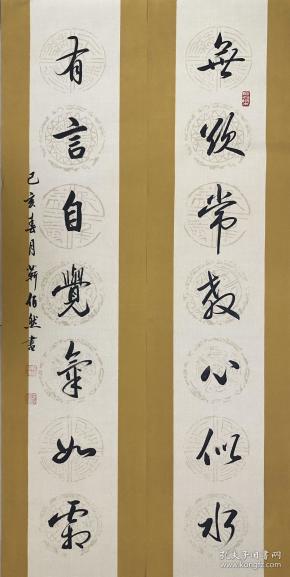 無欲常教心似水
有言自覺氣如霜
己亥春月靳伯然書
孔夫子旧书网